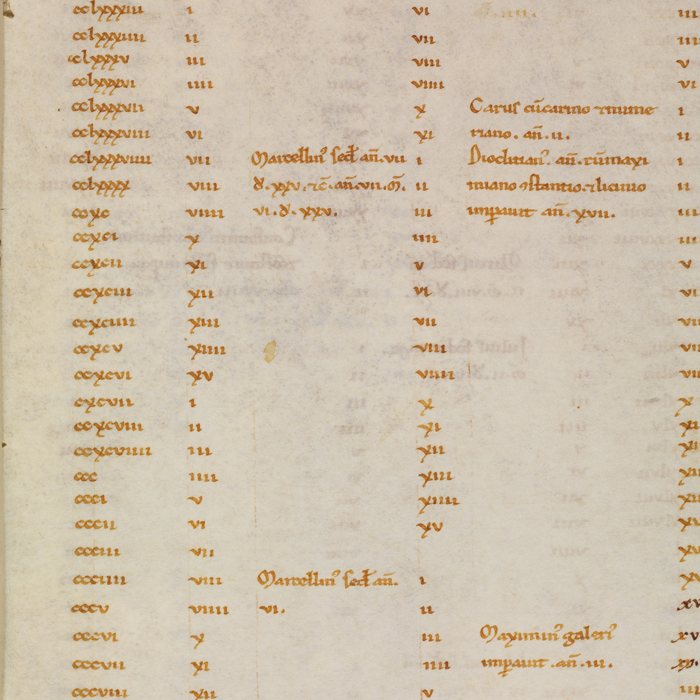 cclxxxiii i vi iii
cclxxxiiii ii vii iiii
cclxxxv iii viii v
cclxxxvi iiii viiii vi
cclxxxvii v x Carus cū carino & nume i
cclxxxviii vi xi riano. an̄. ii. ii
cclxxxviiii vii Marcellin᾽ sed̄ an̄. vii i Dioclitian᾽. an̄. cū maxi iii
cclxxxx viii d̄. xxv. & c̄. an̄. vii. m̄. ii miano ꝯstantio & licinio iiii
ccxc viiii vi. d̄. xxv. iii impauit an̄. xvii. iii
ccxci x iiii
ccxcii xi v v
ccxciii xii vi vi
ccxciiii xiii vii
ccxcv xiiii viii
ccxcvi xv viiii
ccxcvii i x x
ccxcviii ii xi
ccxcviiii iii xii
ccc iiii xiii
ccci v xiiii
cccii vi xv
ccciii vii
ccciiii viii Marcellin᾽ sed̄ an̄. i
cccv viiii vi. ii
cccvi x iii Maximin᾽ galeri᾽
cccvii xi iiii impauit. an̄. iii.
cccviii xii v